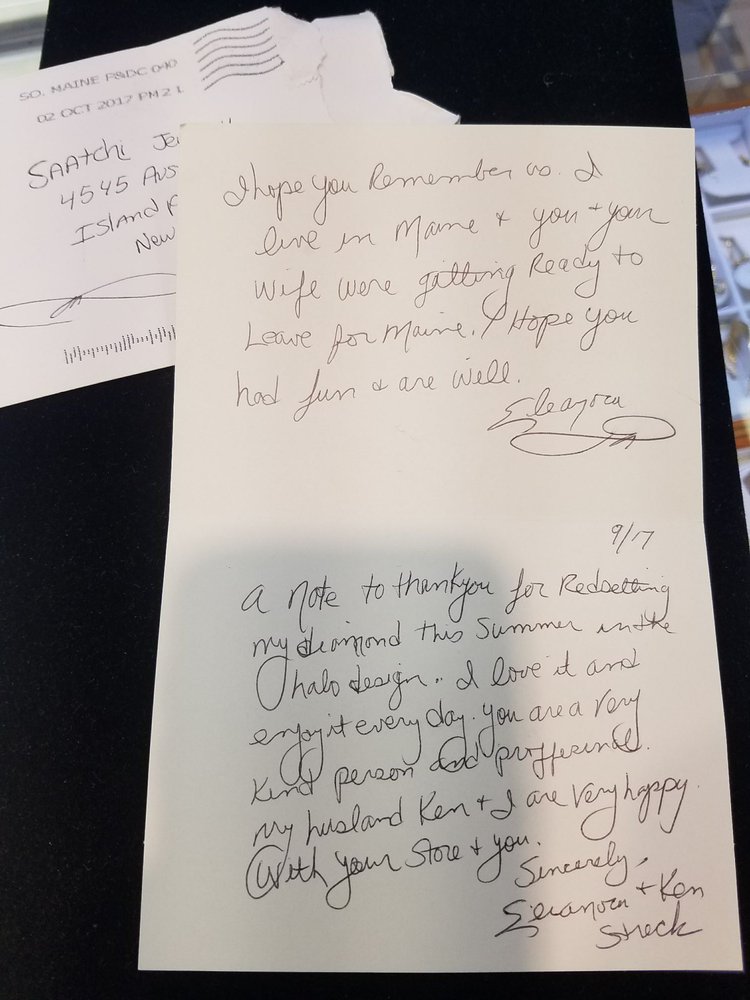 SO. MAINE P&DC 040
02 OCT 2017 PM 2 L
SAAtchi Je
4545 Aus
Island P
New
I hope you Remember us. I
live in Maine + you + your
Wife were getting Ready to
Leave for Maine. I Hope you
had fun + are well.
Eleanora
9/17
A Note to thankyou for Redsetting
my diamond this Summer in the
halo design.. I love it and
enjoy it every day. you are a very
Kind person and
my husband Ken + I are very happy
With your Store + you.
Sincerely,
Eleanora + Ken
Streck